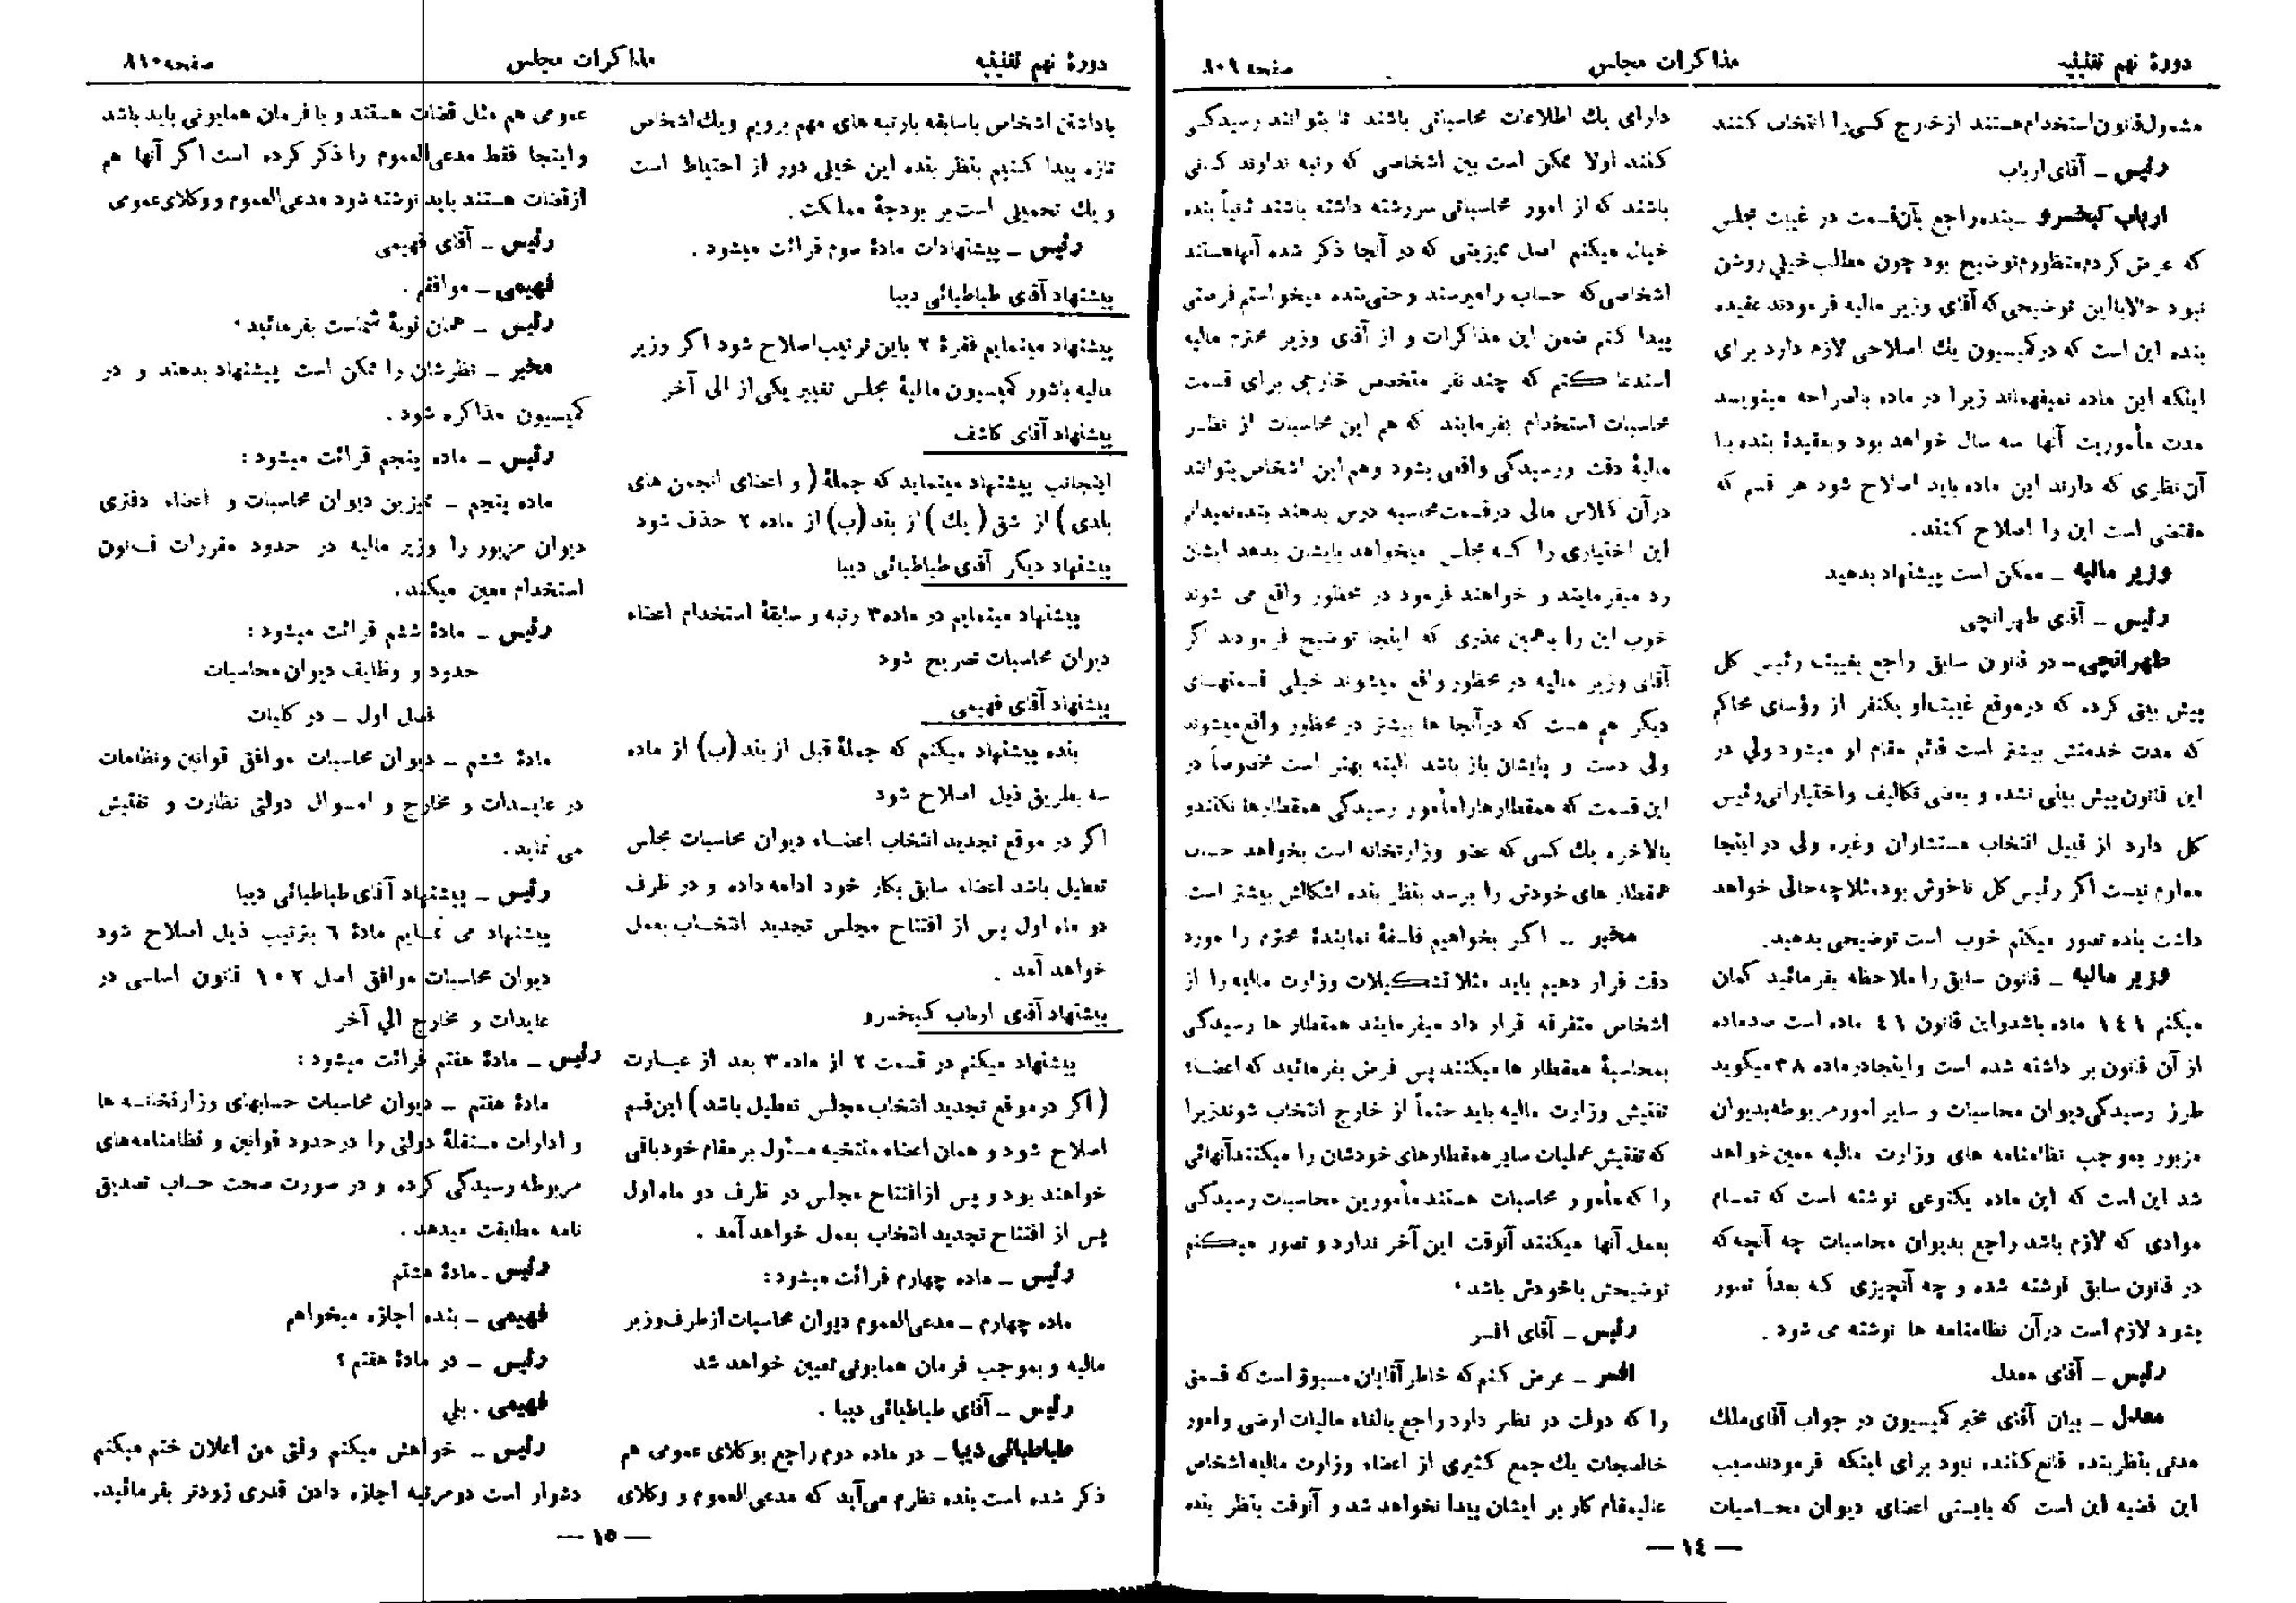 دورهٔ نهم تقنینیه
مذاکرات مجلس
صفحه ۸۰۹
مشمول قانون استخدام هستند از خارج کسی را انتخاب کنند
رئیس ــ آقای ارباب
ارباب کیخسرو ــ بنده راجع بآن قسمت در غیبت مجلس
که عرض کردم منظورم توضیح بود چون مطالب خیلی روشن
نبود حالا با این توضیحی که آقای وزیر مالیه فرمودند عقیده
بنده این است که در کمیسیون یك اصلاحی لازم دارد برای
اینکه این ماده نمیفهماند زیرا در ماده بالصراحه مینویسد
مدت مأموریت آنها سه سال خواهد بود و بعقیدهٔ بنده با
آن نظری که دارند این ماده باید اصلاح شود هر قسم که
مقتضی است این را اصلاح کنند.
وزیر مالیه ــ ممکن است پیشنهاد بدهید
رئیس ــ آقای طهرانچی
طهرانچی ــ در قانون سابق راجع بغیبت رئیس کل
پیش بینی کرده که در موقع غیبت او یکنفر از رؤسای محاکم
که مدت خدمتش بیشتر است قائم مقام او میشود ولی در
این قانون پیش بینی نشده و بعضی تکالیف و اختیاراتی رئیس
کل دارد از قبیل انتخاب مستشاران وغیره ولی در اینجا
معلوم نیست اگر رئیس کل ناخوش بود مثلا چه حالی خواهد
داشت بنده تصور میکنم خوب است توضیحی بدهید.
وزیر مالیه ــ قانون سابق را ملاحظه بفرمائید گمان
میکنم ۱٤۱ ماده باشد و این قانون ٤۱ ماده است صد ماده
از آن قانون بر داشته شده است و اینجا در ماده ۳۸ میگوید
طرز رسیدگی دیوان محاسبات و سایر امور مربوطه بدیوان
مزبور بموجب نظامنامه های وزارت مالیه معین خواهد
شد این است که این ماده یکنوعی نوشته است که تمام
موادی که لازم باشد راجع بدیوان محاسبات چه آنچه که
در قانون سابق نوشته شده و چه آنچیزی که بعداً تصور
بشود لازم است در آن نظامنامه ها نوشته می شود.
رئیس ــ آقای معدل
معدل ــ بیان آقای مخبر کمیسیون در جواب آقای ملك
مدنی بنظر بنده قانع کننده نبود برای اینکه فرمودند سبب
این قضیه این است که بایستی اعضای دیوان محاسبات
دارای یك اطلاعات محاسباتی باشند تا بتوانند رسیدگی
کنند اولا ممکن است بین اشخاصی که رتبه ندارند کسانی
باشند که از امور محاسباتی سررشته داشته باشند ثانیاً بنده
خیال میکنم اصل ممیزینی که در آنجا ذکر شده آنها هستند
اشخاصی که حساب را میرسند و حتی بنده میخواستم فرصتی
پیدا کنم ضمن این مذاکرات و از آقای وزیر محترم مالیه
استدعا کنم که چند نفر متخصص خارجی برای قسمت
محاسبات استخدام بفرمایند که هم این محاسبات از نظر
مالیهٔ دقت ورسیدگی واقعی بشود وهم این اشخاص بتوانند
در آن کلاس مالی در قسمت محاسبه درس بدهند بنده نمیدانم
این اختیاری را که مجلس میخواهد بایشان بدهد ایشان
رد میفرمایند و خواهند فرمود در محظور واقع می شوند
خوب این را بهمین عذری که اینجا توضیح فرمودند اگر
آقای وزیر مالیه در محظور واقع میشوند خیلی قسمتهای
دیگر هم هست که در آنجا ها بیشتر در محظور واقع میشوند
ولی دست و پایشان باز باشد البته بهتر است مخصوصاً در
این قسمت که همقطارها را مأمور رسیدگی همقطارها نکنند و
بالاخره یك کسی که عضو وزارتخانه است بخواهد حساب
همقطار های خودش را برسد بنظر بنده اشکالش بیشتر است.
مخبر ــ اگر بخواهیم فلسفهٔ نمایندهٔ محترم را مورد
دقت قرار دهیم باید مثلا تشکیلات وزارت مالیه را از
اشخاص متفرقه قرار داد میفرمایند همقطار ها رسیدگی
بمحاسبهٔ همقطار ها میکنند پس فرض بفرمائید که اعضاء
تفتیش وزارت مالیه باید حتماً از خارج انتخاب شوند زیرا
که تفتیش عملیات سایر همقطارهای خودشان را میکنند آنهائی
را که مأمور محاسبات هستند مأمورین محاسبات رسیدگی
بعمل آنها میکنند آنوقت این آخر ندارد و تصور میکنم
توضیحش با خودش باشد.
رئیس ــ آقای افسر
افسر ــ عرض کنم که خاطر آقایان مسبوق است که قسمتی
را که دولت در نظر دارد راجع بالغاء مالیات ارضی و امور
خالصجات یك جمع کثیری از اعضاء وزارت مالیه اشخاص
عالیمقام کار بر ایشان پیدا نخواهد شد و آنوقت بنظر بنده
— ۱٤ —
دورهٔ نهم تقنینیه
مذاکرات مجلس
صفحه ۸۱۰
با داشتن اشخاص باسابقه بارتبه های مهم برویم ویك اشخاص
تازه پیدا کنیم بنظر بنده این خیلی دور از احتیاط است
و یك تحمیلی است بر بودجهٔ مملکت.
رئیس ــ پیشنهادات مادهٔ سوم قرائت میشود.
پیشنهاد آقای طباطبائی دیبا
پیشنهاد مینمایم فقرهٔ ۲ باین ترتیب اصلاح شود اگر وزیر
مالیه باشور کمیسیون مالیهٔ مجلس تغییر یکی از الی آخر
پیشنهاد آقای کاشف
اینجانب پیشنهاد مینماید که جملهٔ (و اعضای انجمن های
بلدی) از شق (یك) از بند (ب) از ماده ۲ حذف شود
پیشنهاد دیگر آقای طباطبائی دیبا
پیشنهاد مینمایم در ماده ۳ رتبه و سابقهٔ استخدام اعضاء
دیوان محاسبات تصریح شود
پیشنهاد آقای فهیمی
بنده پیشنهاد میکنم که جملهٔ قبل از بند (ب) از ماده
سه بطریق ذیل اصلاح شود
اگر در موقع تجدید انتخاب اعضاء دیوان محاسبات مجلس
تعطیل باشد اعضاء سابق بکار خود ادامه داده و در ظرف
دو ماه اول پس از افتتاح مجلس تجدید انتخاب بعمل
خواهد آمد.
پیشنهاد آقای ارباب کیخسرو
پیشنهاد میکنم در قسمت ۲ از ماده ۳ بعد از عبارت
(اگر در موقع تجدید انتخاب مجلس تعطیل باشد) این قسم
اصلاح شود و همان اعضاء منتخبه مسئول بر مقام خود باقی
خواهند بود و پس از افتتاح مجلس در ظرف دو ماه اول
پس از افتتاح تجدید انتخاب بعمل خواهد آمد.
رئیس ــ ماده چهارم قرائت میشود:
ماده چهارم ــ مدعی العموم دیوان محاسبات از طرف وزیر
مالیه و بموجب فرمان همایونی تعیین خواهد شد
رئیس ــ آقای طباطبائی دیبا.
طباطبائی دیبا ــ در ماده دوم راجع بوکلای عمومی هم
ذکر شده است بنده نظرم می‌آید که مدعی العموم و وکلای
عمومی هم مثل قضات هستند و با فرمان همایونی باید باشد
و اینجا فقط مدعی العموم را ذکر کرده است اگر آنها هم
از قضات هستند باید نوشته شود مدعی العموم و وکلای عمومی
رئیس ــ آقای فهیمی
فهیمی ــ موافقم.
رئیس ــ همان نوبهٔ شماست بفرمائید.
مخبر ــ نظرشان را ممکن است پیشنهاد بدهند و در
کمیسیون مذاکره شود.
رئیس ــ ماده پنجم قرائت میشود:
ماده پنجم ــ ممیزین دیوان محاسبات و اعضاء دفتری
دیوان مزبور را وزیر مالیه در حدود مقررات قانون
استخدام معین میکند.
رئیس ــ مادهٔ ششم قرائت میشود:
حدود و وظایف دیوان محاسبات
فصل اول ــ در کلیات
مادهٔ ششم ــ دیوان محاسبات موافق قوانین ونظامات
در عایدات و مخارج و اموال دولتی نظارت و تفتیش
می نماید.
رئیس ــ پیشنهاد آقای طباطبائی دیبا
پیشنهاد می نمایم مادهٔ ٦ بترتیب ذیل اصلاح شود
دیوان محاسبات موافق اصل ۱۰۲ قانون اساسی در
عایدات و مخارج الی آخر
رئیس ــ مادهٔ هفتم قرائت میشود:
مادهٔ هفتم ــ دیوان محاسبات حسابهای وزارتخانه ها
و ادارات مستقلهٔ دولتی را در حدود قوانین و نظامنامه‌های
مربوطه رسیدگی کرده و در صورت صحت حساب تصدیق
نامه مطابقت میدهد.
رئیس ــ مادهٔ هشتم
فهیمی ــ بنده اجازه میخواهم
رئیس ــ در مادهٔ هفتم؟
فهیمی . بلی
رئیس ــ خواهش میکنم وقتی من اعلان ختم میکنم
دشوار است دو مرتبه اجازه دادن قدری زودتر بفرمائید.
— ۱٥ —